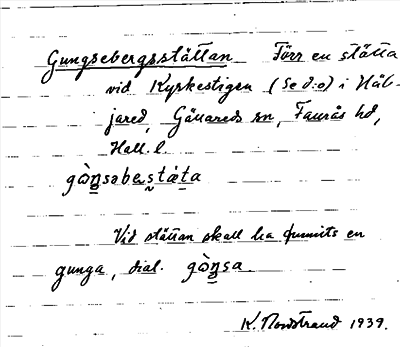 Gungsebergsstättan Förr en stätta
vid Kyrkestigen (Se d:o) i Häb-
jared, Gällareds sn, Faurås hd,
Hall. l.
gòn̰sabas̰tǻta
Vid stättan skall ha funnits en
gunga, dial. gòn̰sa.
K. Nordstrand 1939.